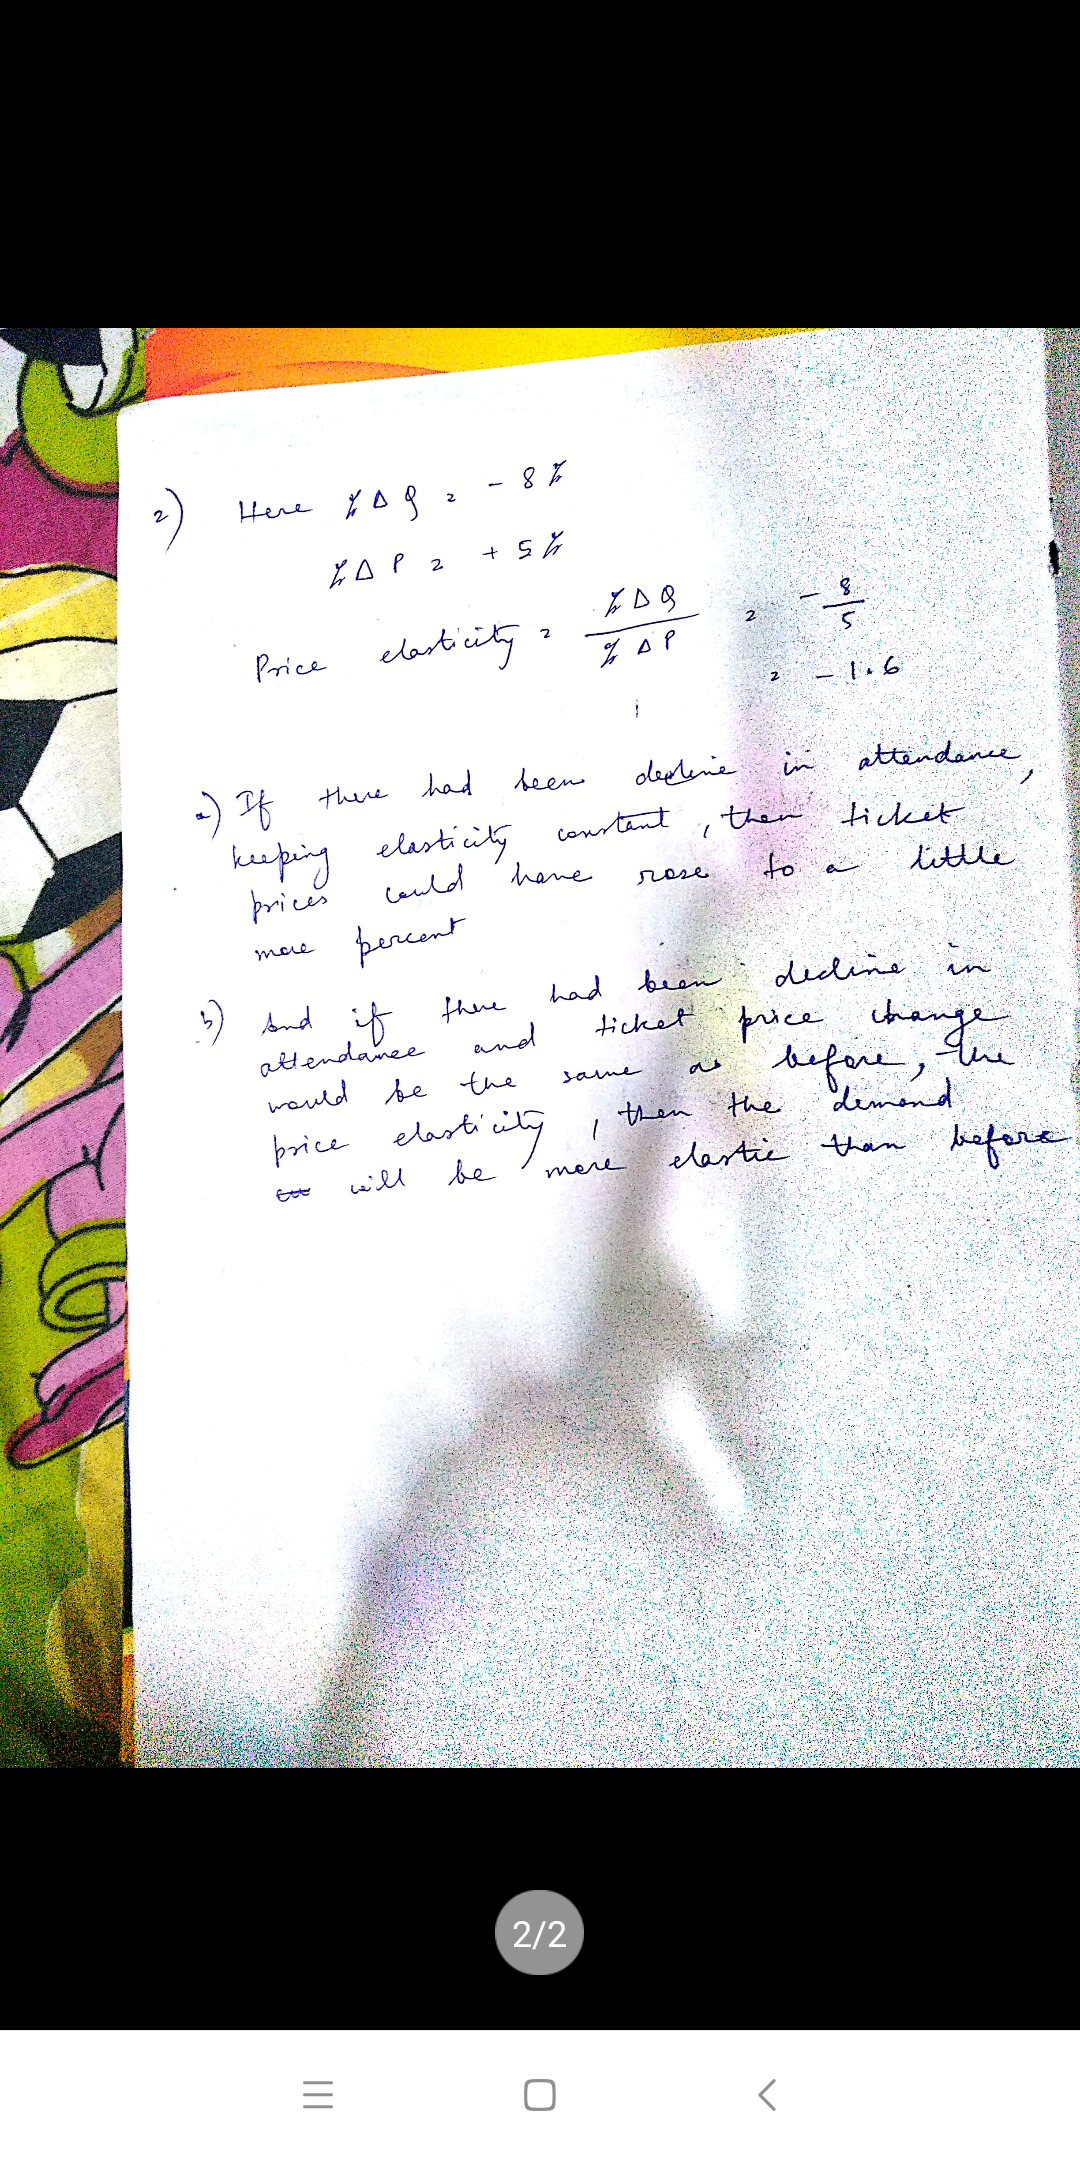 2) Here % Δ Q = - 8 %
% Δ P = + 5 %
Price elasticity = % Δ Q / % Δ P = - 8/5
= - 1.6
a) If there had been decline in attendance,
keeping elasticity constant, then ticket
prices could have rose to a little
more percent
b) And if there had been decline in
attendance and ticket price change
would be the same as before, the
price elasticity, then the demand
will be more elastic than before
2/2